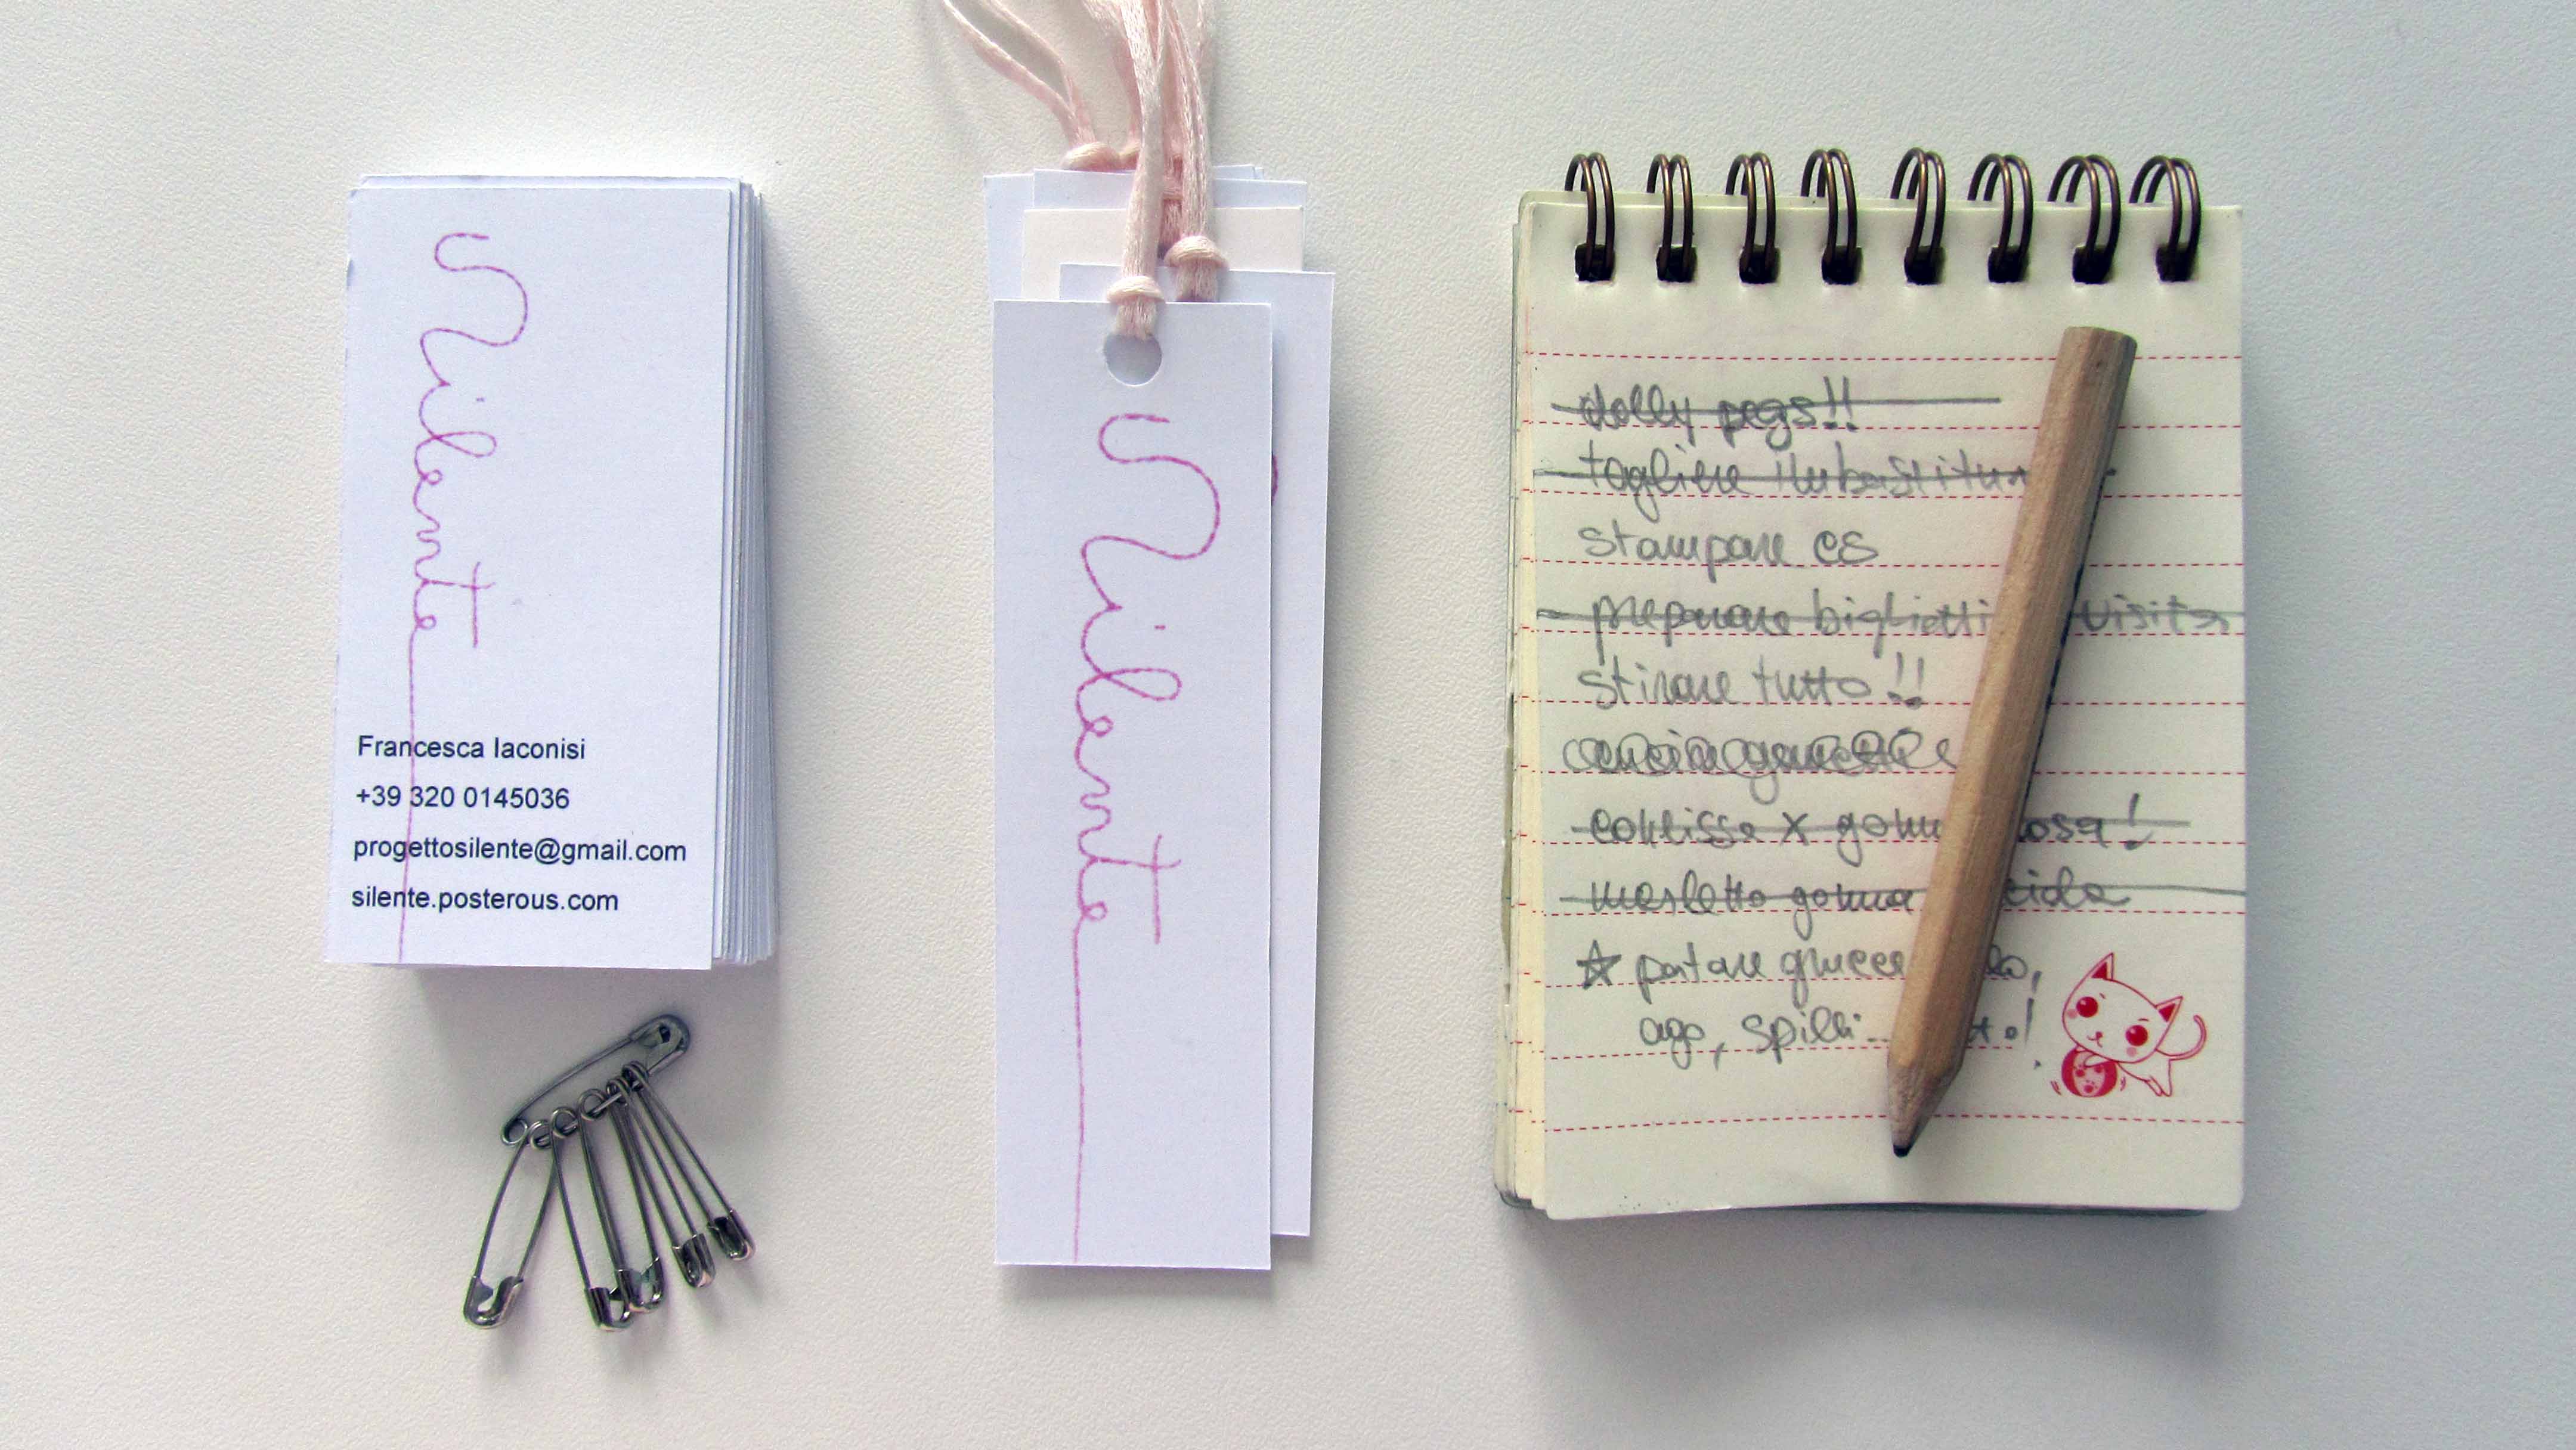 Silente
Francesca Iaconisi
+39 320 0145036
progettosilente@gmail.com
silente.posterous.com
Silente
dolly pegs!!
togliere imbastitur
stampare cs
preparare biglietti visita
stirare tutto!!
coulisse x gomm rosa!
merletto gomma
☆ portare grucce
ago, spilli..